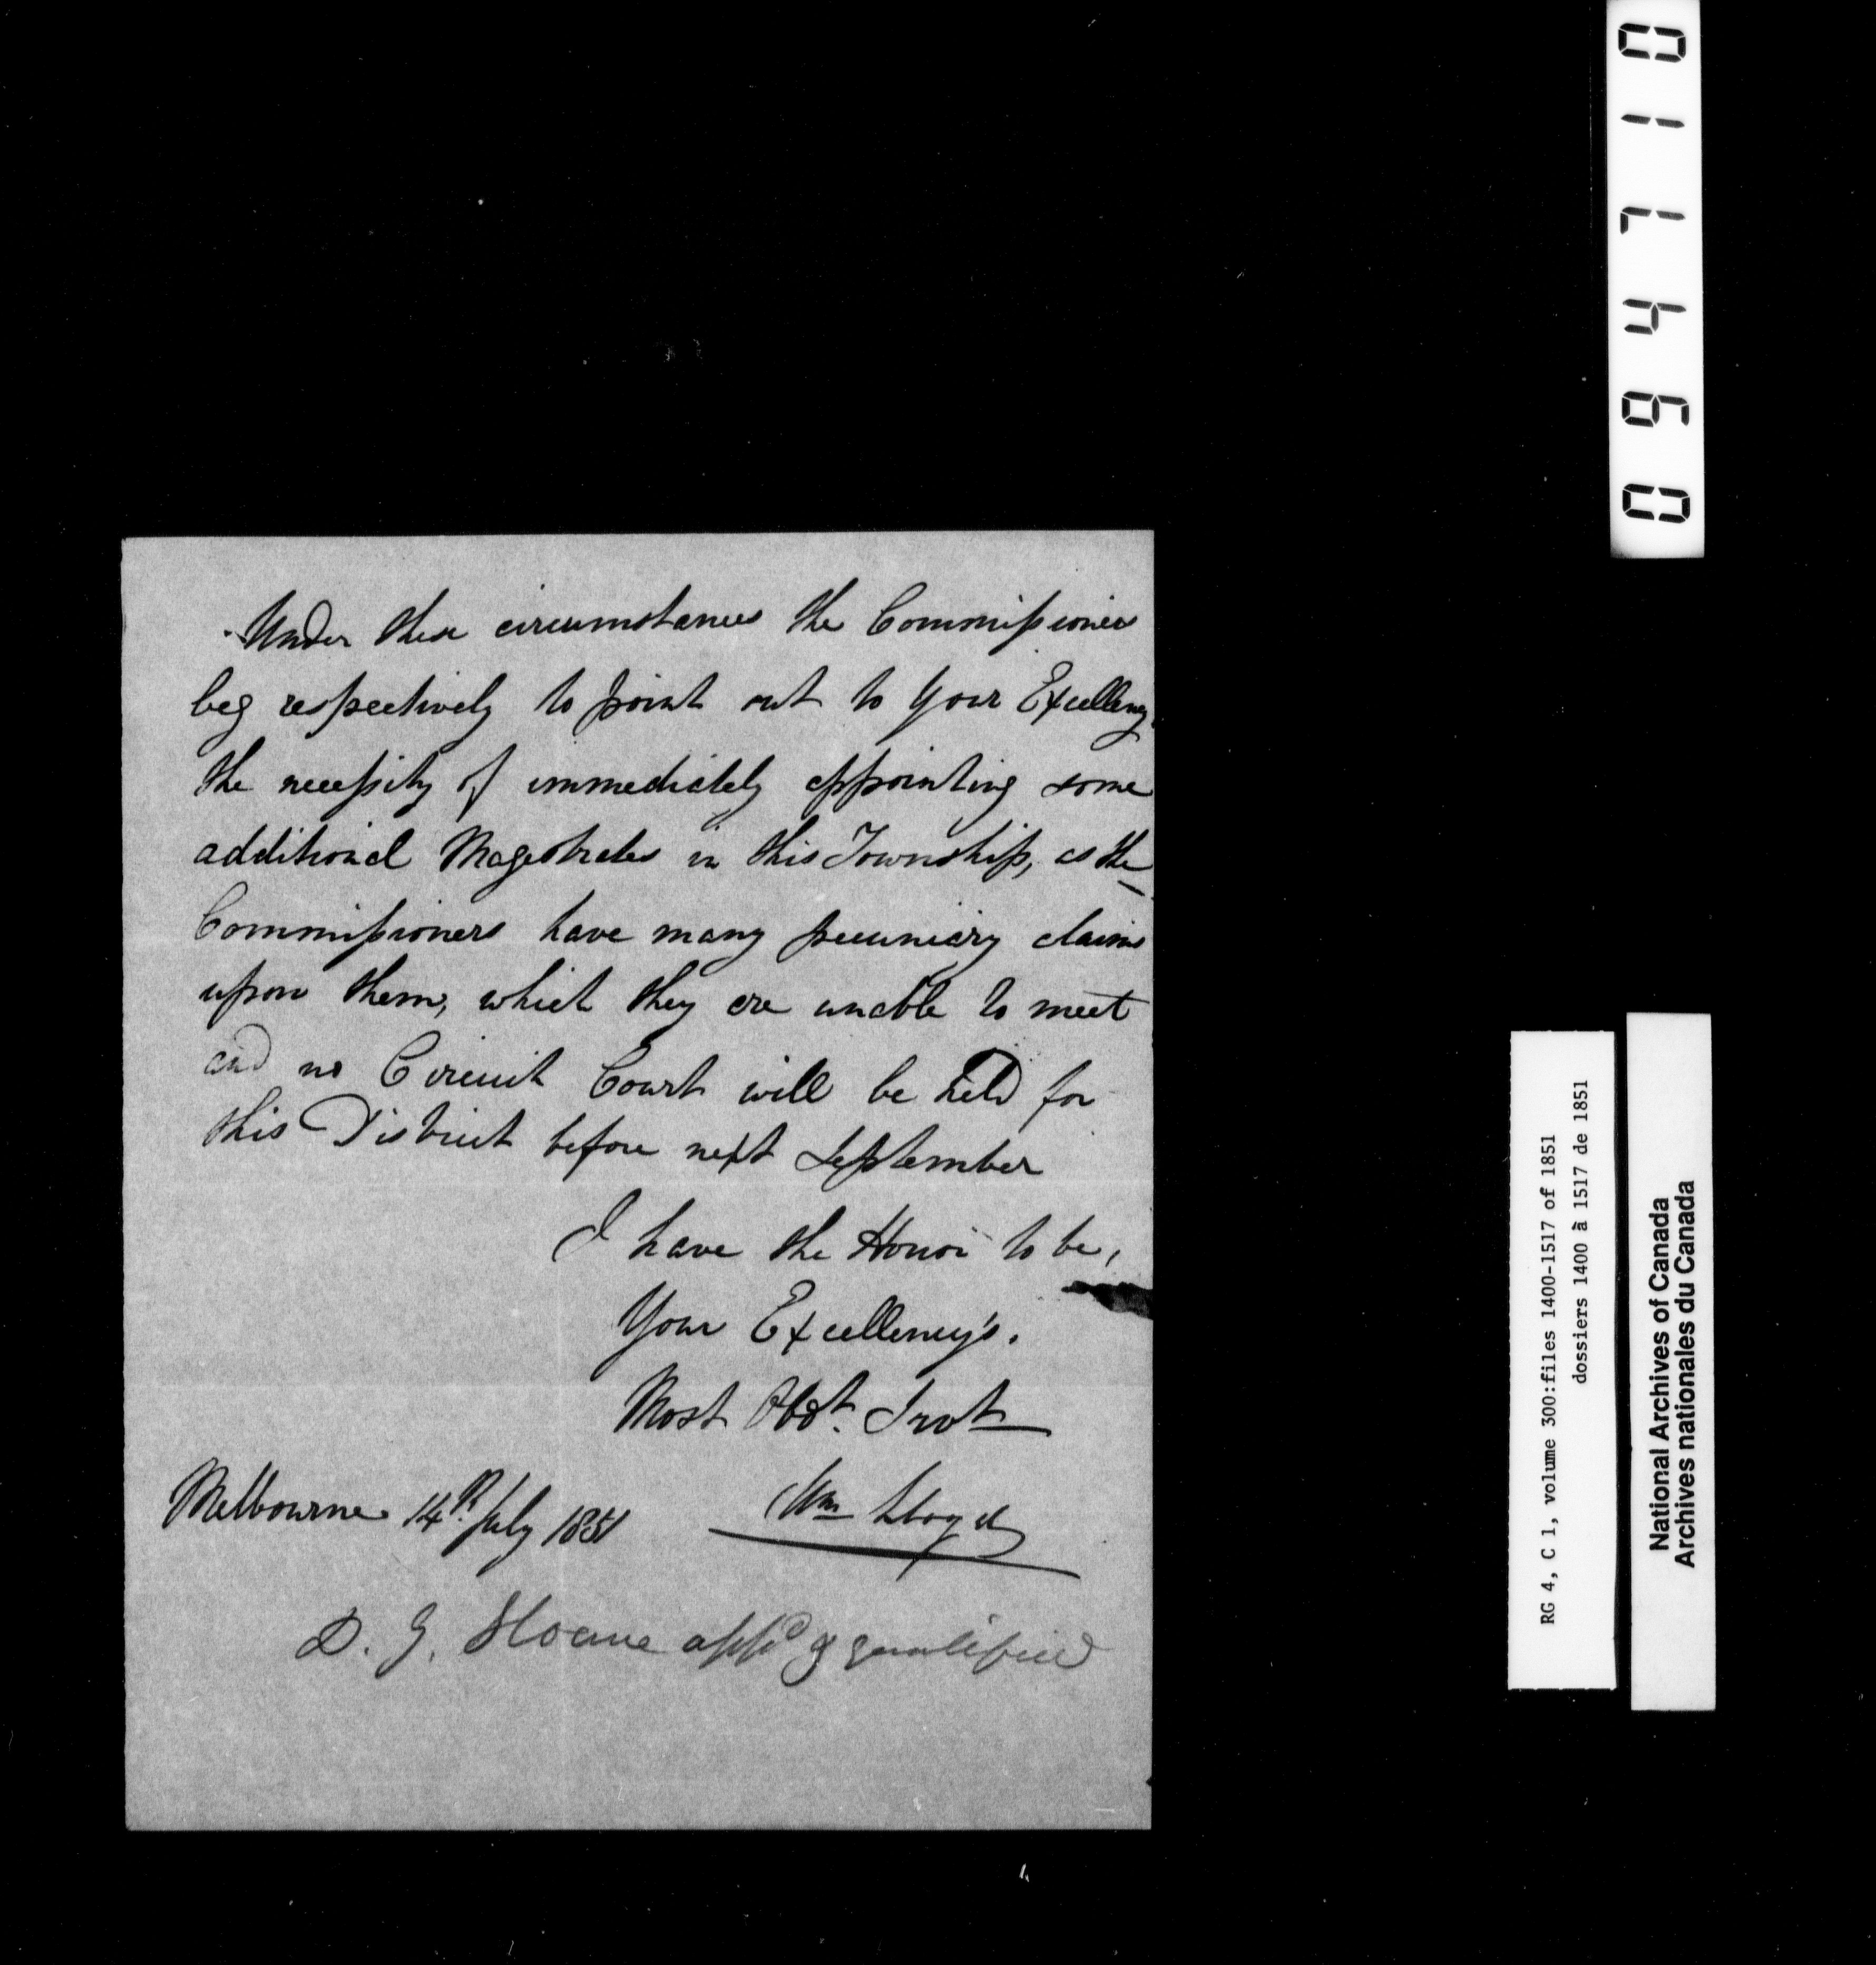 Under these circumstances the Commissioners
beg respectively to point out to Your Excellency
the necessity of immediately appointing some
additional Magestrates in this Township, as the
Commissioners have many pecuniary claims
upon them, which they are unable to meet
and no Circuit Court will be held for
this District before next September
I have the Honor to be,
Your Excellency's.
Most Obdt. Srvt
Melbourne 14th July 1851
Wm Lloyd
D. G. Sloane appd & qualified
094710
RG 4, C 1, volume 300:files 1400-1517 of 1851
dossiers 1400 à 1517 de 1851
National Archives of Canada
Archives nationales du Canada